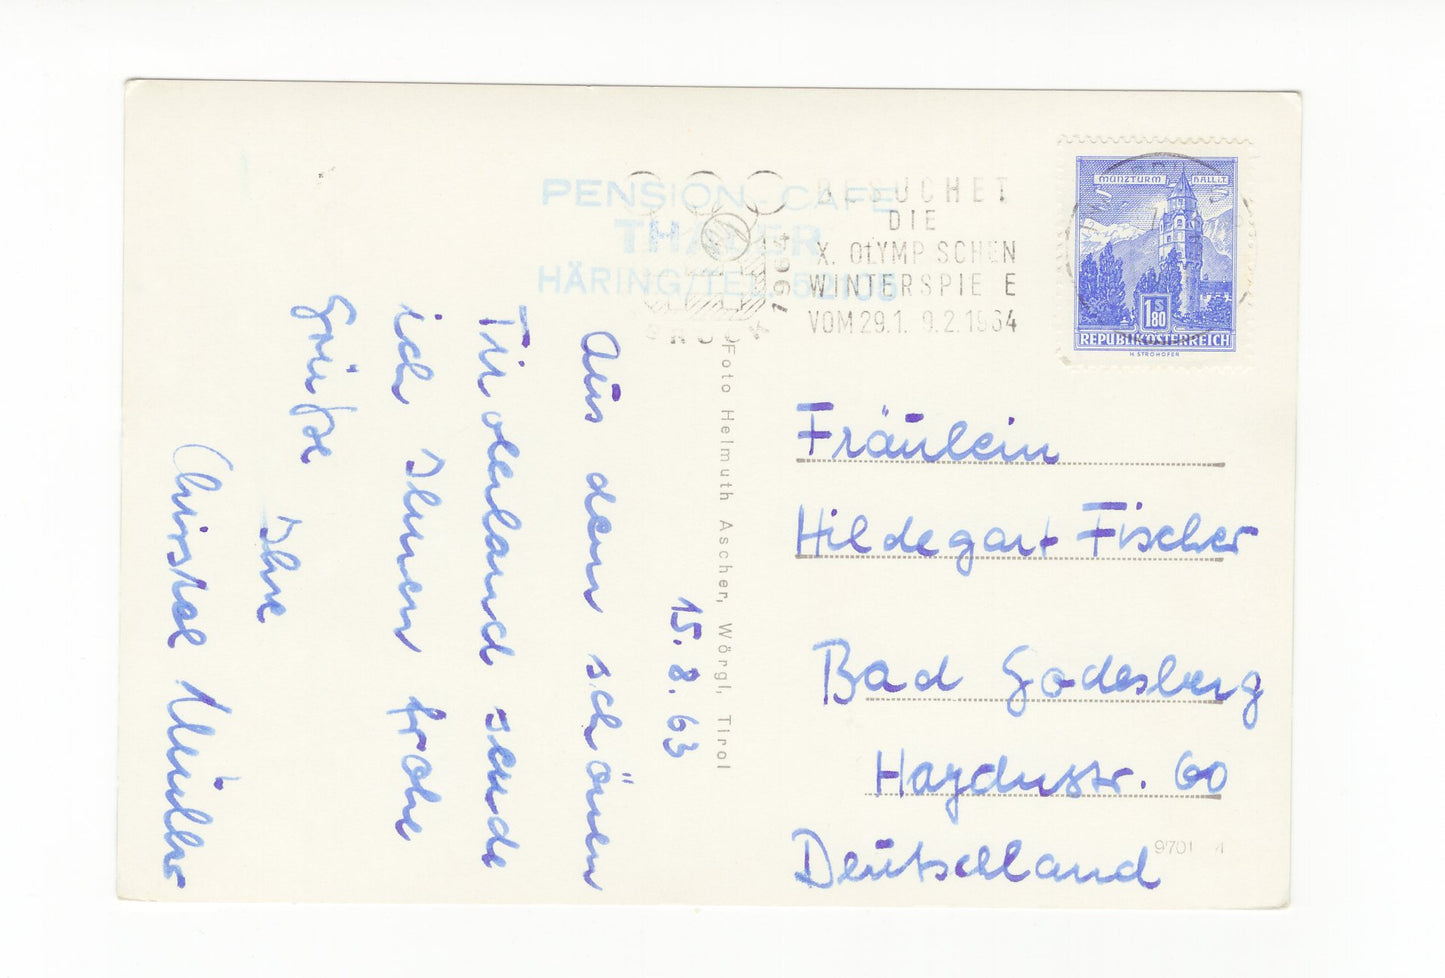 PENSION-CAFE
THALER
HÄRING/TEL. 52105
1964
BRUCK
BESUCHET
DIE
X. OLYMP SCHEN
WINTERSPIE E
VOM 29.1. 9.2.1964
MÜNZTURM HALL i.T.
S
1.80
REPUBLIK ÖSTERREICH
H. STROHOFER
15.8.63
Aus dem schönen
Tirolerland sende
ich Ihnen frohe
Grüße
Ihre
Christel Müller
Foto Helmuth Ascher, Wörgl, Tirol
Fräulein
Hildegart Fischer
Bad Godesberg
Haydnstr. 60
Deutschland
9701 4